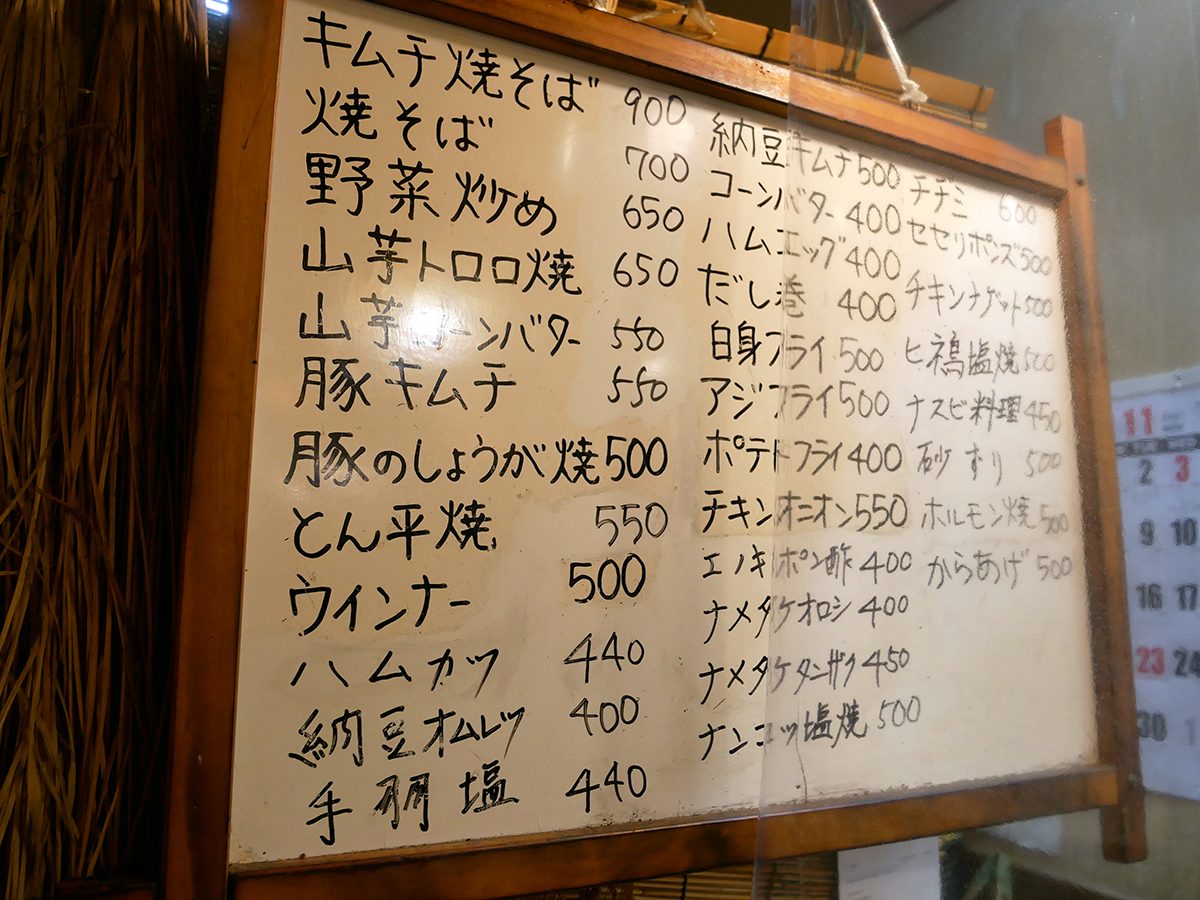 キムチ焼そば 900
焼そば 700
野菜炒め 650
山芋トロロ焼 650
山芋コーンバター 550
豚キムチ 550
豚のしょうが焼 500
とん平焼 550
ウインナー 500
ハムカツ 440
納豆オムレツ 400
手羽塩 440
納豆キムチ 500
コーンバター 400
ハムエッグ 400
だし巻 400
白身フライ 500
アジフライ 500
ポテトフライ 400
チキンオニオン 550
エノキポン酢 400
ナメタケオロシ 400
ナメタケタンザク 450
ナンコツ塩焼 500
チヂミ 600
セセリポンズ 500
チキンナゲット 500
塩焼 500
ナスビ料理 450
砂ずり 500
ホルモン焼 500
からあげ 500
11
2 3
9 10
16 17
23 24
30 1